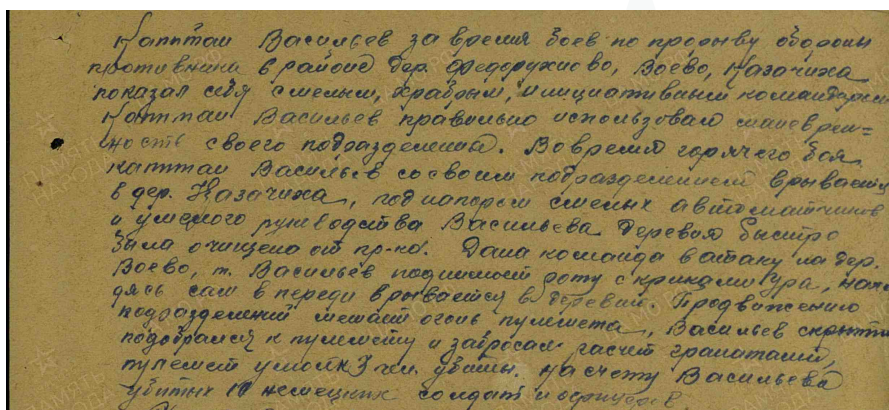 Капитан Васильев за время боев по прорыву обороны
противника в районе дер. Федорухново, Воево, Казачиха
показал себя смелым, храбрым, инициативным командиром
Капитан Васильев правильно использовал маневрен=
ность своего подразделения. Вовремя горячего боя
капитан Васильев со своим подразделением врывается
в дер. Казачиха, под напором смелых автоматчиков
и умелого руководства Васильева деревня быстро
была очищена от пр-ка. Дана команда в атаку на дер.
Воево, т. Васильев поднимает роту с криками ура, нахо
дясь сам в переди врывается в деревню. Продвижению
подразделений мешает огонь пулемета, Васильев скрытно
подобрался к пулемету и забросал расчет гранатами,
пулемет умолк 3 чел. убиты. На счету Васильева
убитых 10 немецких солдат и офицеров